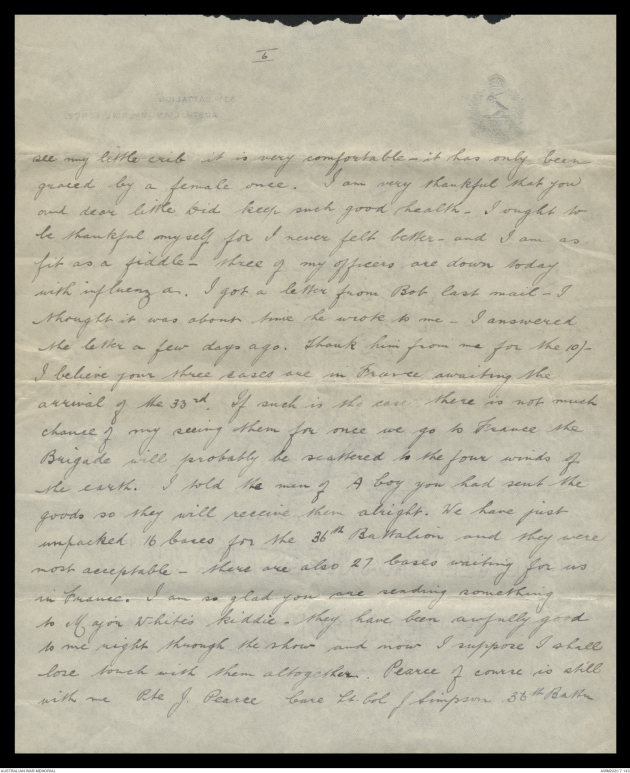 6
see my little crib it is very comfortable - it has only been
graced by a female once. I am very thankful that you
and dear little Did keep such good health - I ought to
be thankful myself for I never felt better - and I am as
fit as a fiddle - three of my officers are down today
with influenza. I got a letter from Bob last mail - I
thought it was about time he wrote to me - I answered
the letter a few days ago. Thank him from me for the 10/-
I believe your three cases are in France awaiting the
arrival of the 33rd. If such is the case there is not much
chance of my seeing them for once we go to France the
Brigade will probably be scattered to the four winds of
the earth. I told the men of A Coy you had sent the
goods so they will receive them alright. We have just
unpacked 16 cases for the 36th Battalion and they were
most acceptable - there are also 27 cases waiting for us
in France. I am so glad you are sending something
to Major White's kiddie. they have been awfully good
to me right through the show and now I suppose I shall
lose touch with them altogether. Pearce of course is still
with me Pte J. Pearce Care Lt Col J Simpson 36th Battn
AUSTRALIAN WAR MEMORIAL